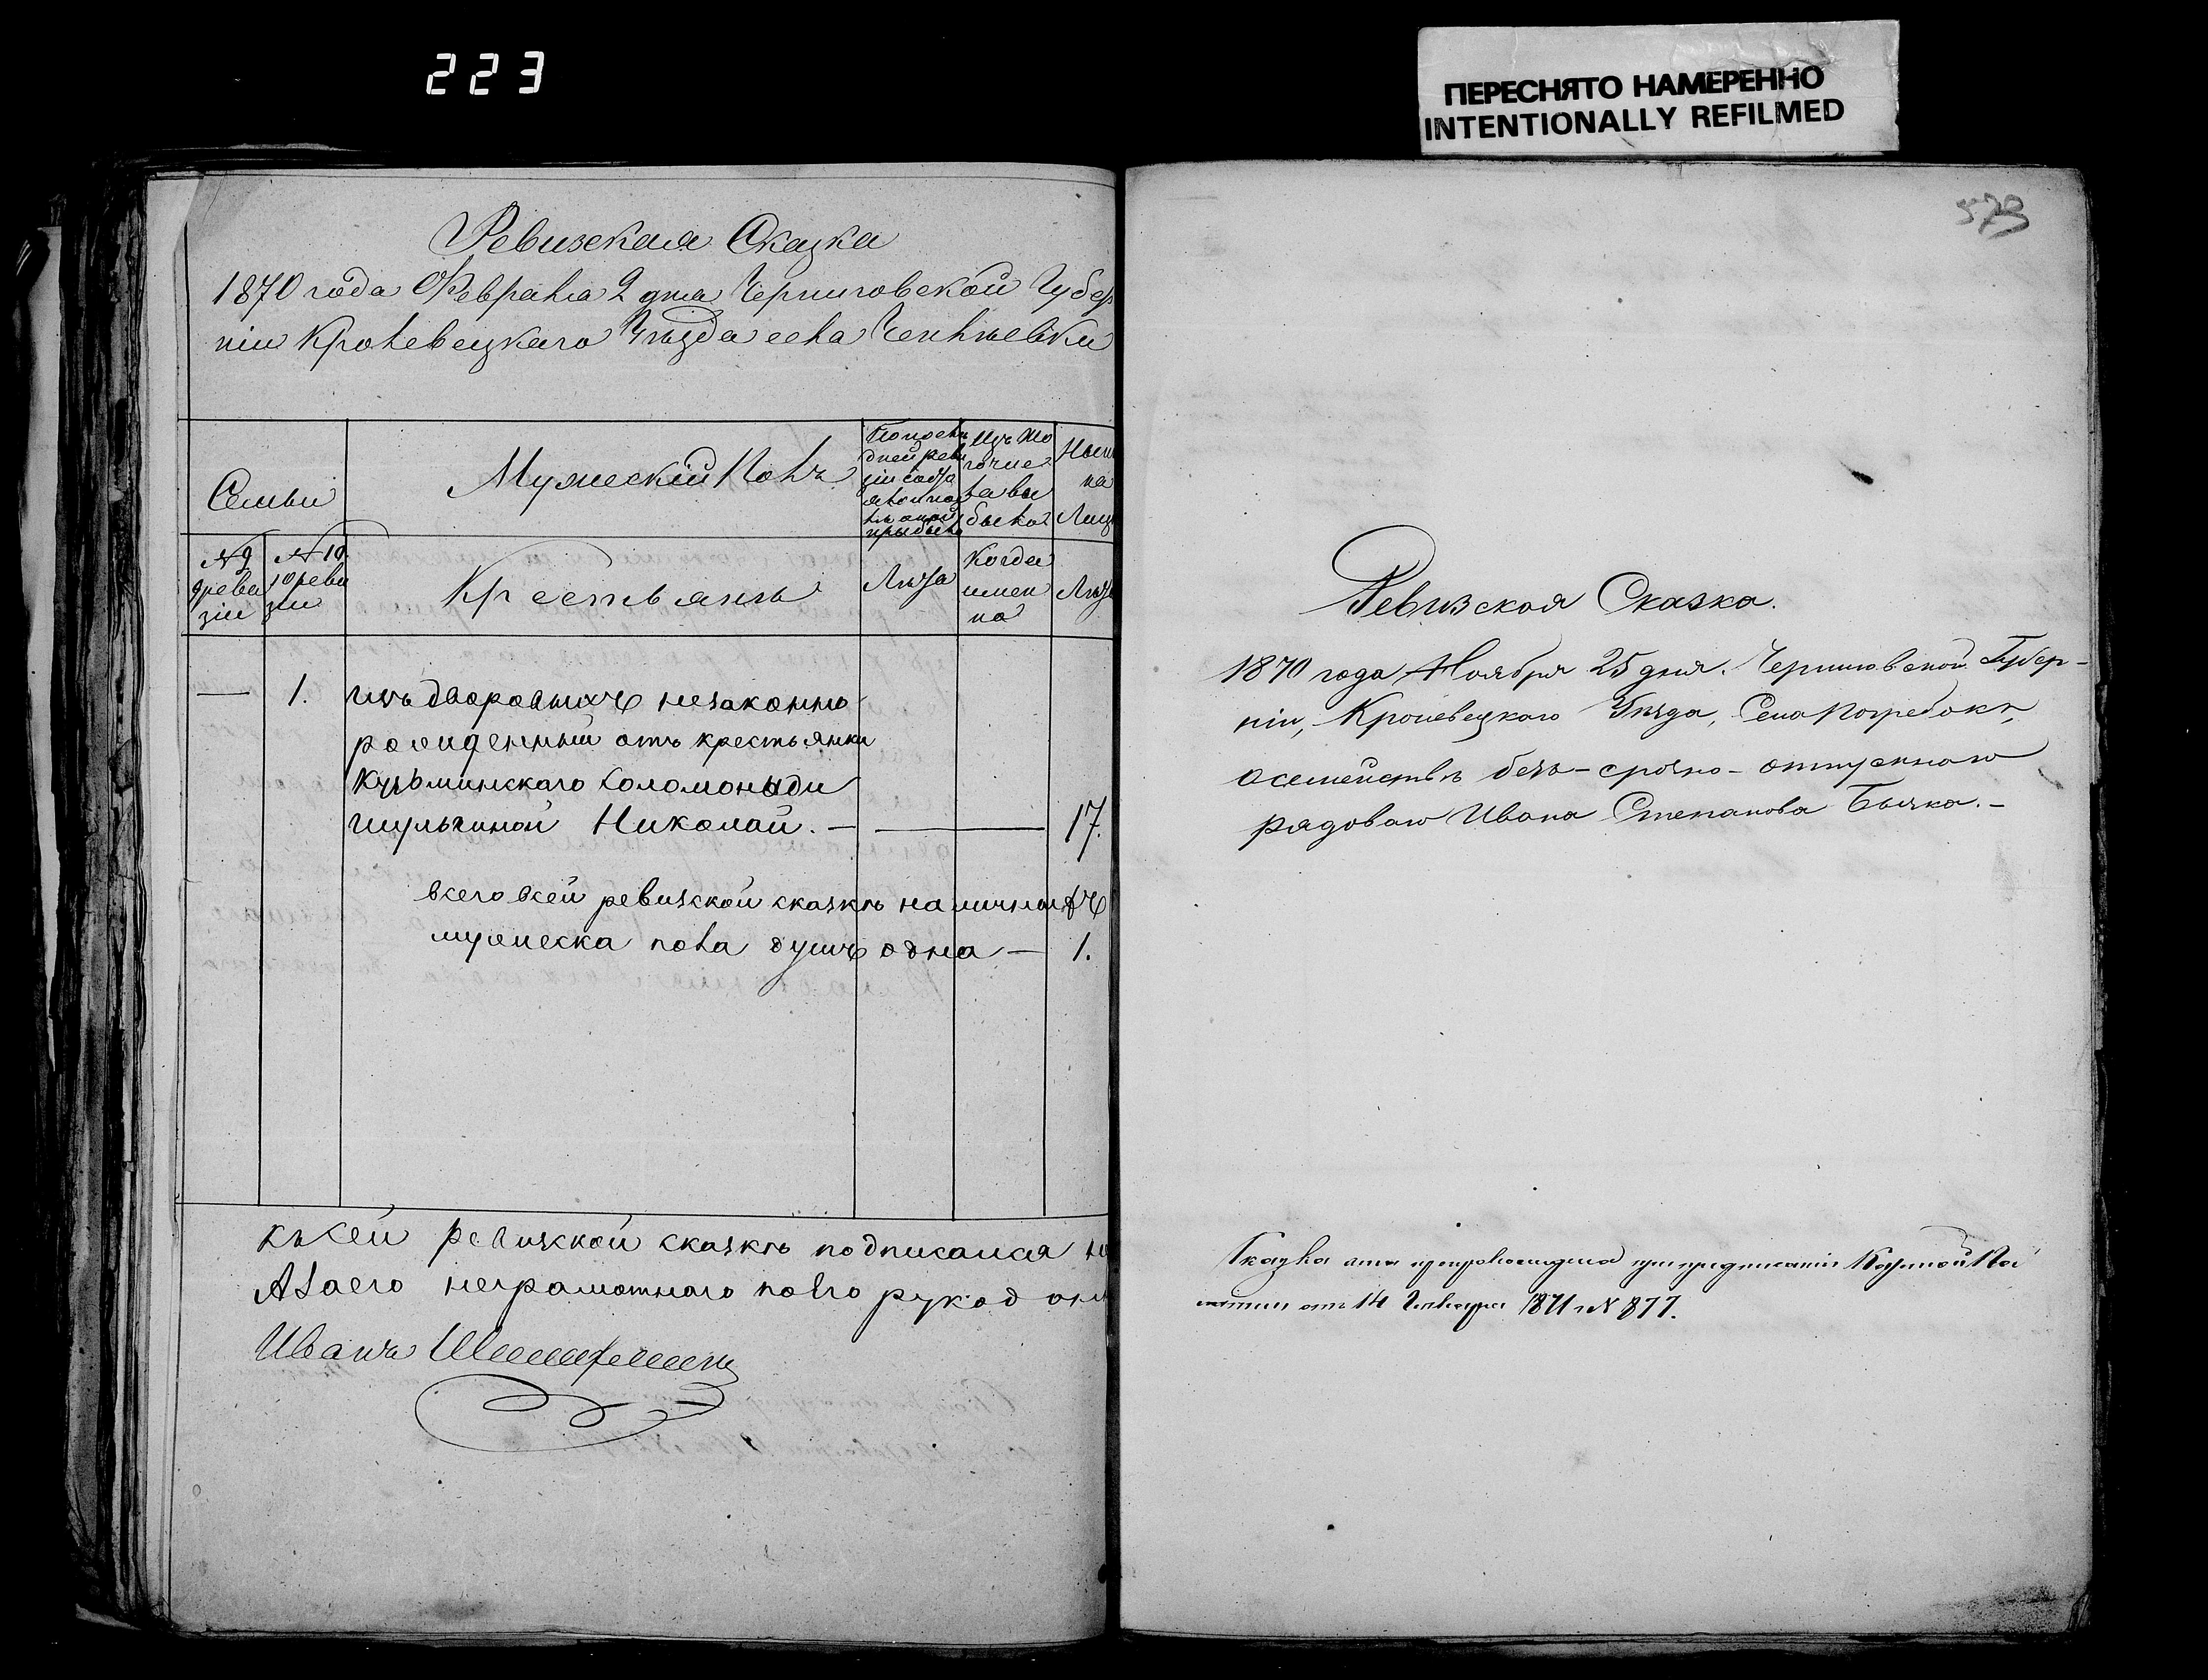 223
ПЕРЕСНЯТО НАМЕРЕННО
INTENTIONALLY REFILMED
Ревизская Сказка
1870 года Февраля 2 дня Черниговской Губер
ніи Кролевецкаго Уѣзда села
Семьи
Мужескій Полъ
По послѣ
дней реви
зіи
прибыло
Изъ то
го чис
ла вы
было
Нын
на
Лиц
№ 9
реви
зіи
№ 10
реви
зіи
Крестьянъ
Лѣта
Когда
имен
но
Лѣт
— 1. изъ дворовыхъ незаконно
рожденный отъ крестьянки
Кузьминскаго Соломониди
Николай. — 17.
всего всей ревизской сказкѣ наличныхъ
мужеска пола душъ одна — 1.
къ сей ревизской сказкѣ подписался
неграмотнаго
Иванъ
579
Ревизская Сказка.
1870 года Ноября 25 дня. Черниговской Губер-
ніи, Кролевецкаго Уѣзда, Села Погребокъ,
осемействѣ безъ-срочно-отпускного
рядоваго Ивана Степанова Бычка.-
Сказка эта препровождена при предписаніи Казенной Па
латы отъ 14 Генваря 1871 г № 877.